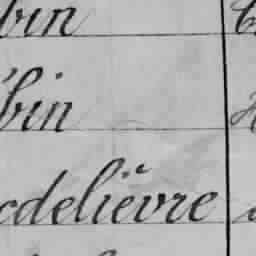 bin
bin
cdelièvre